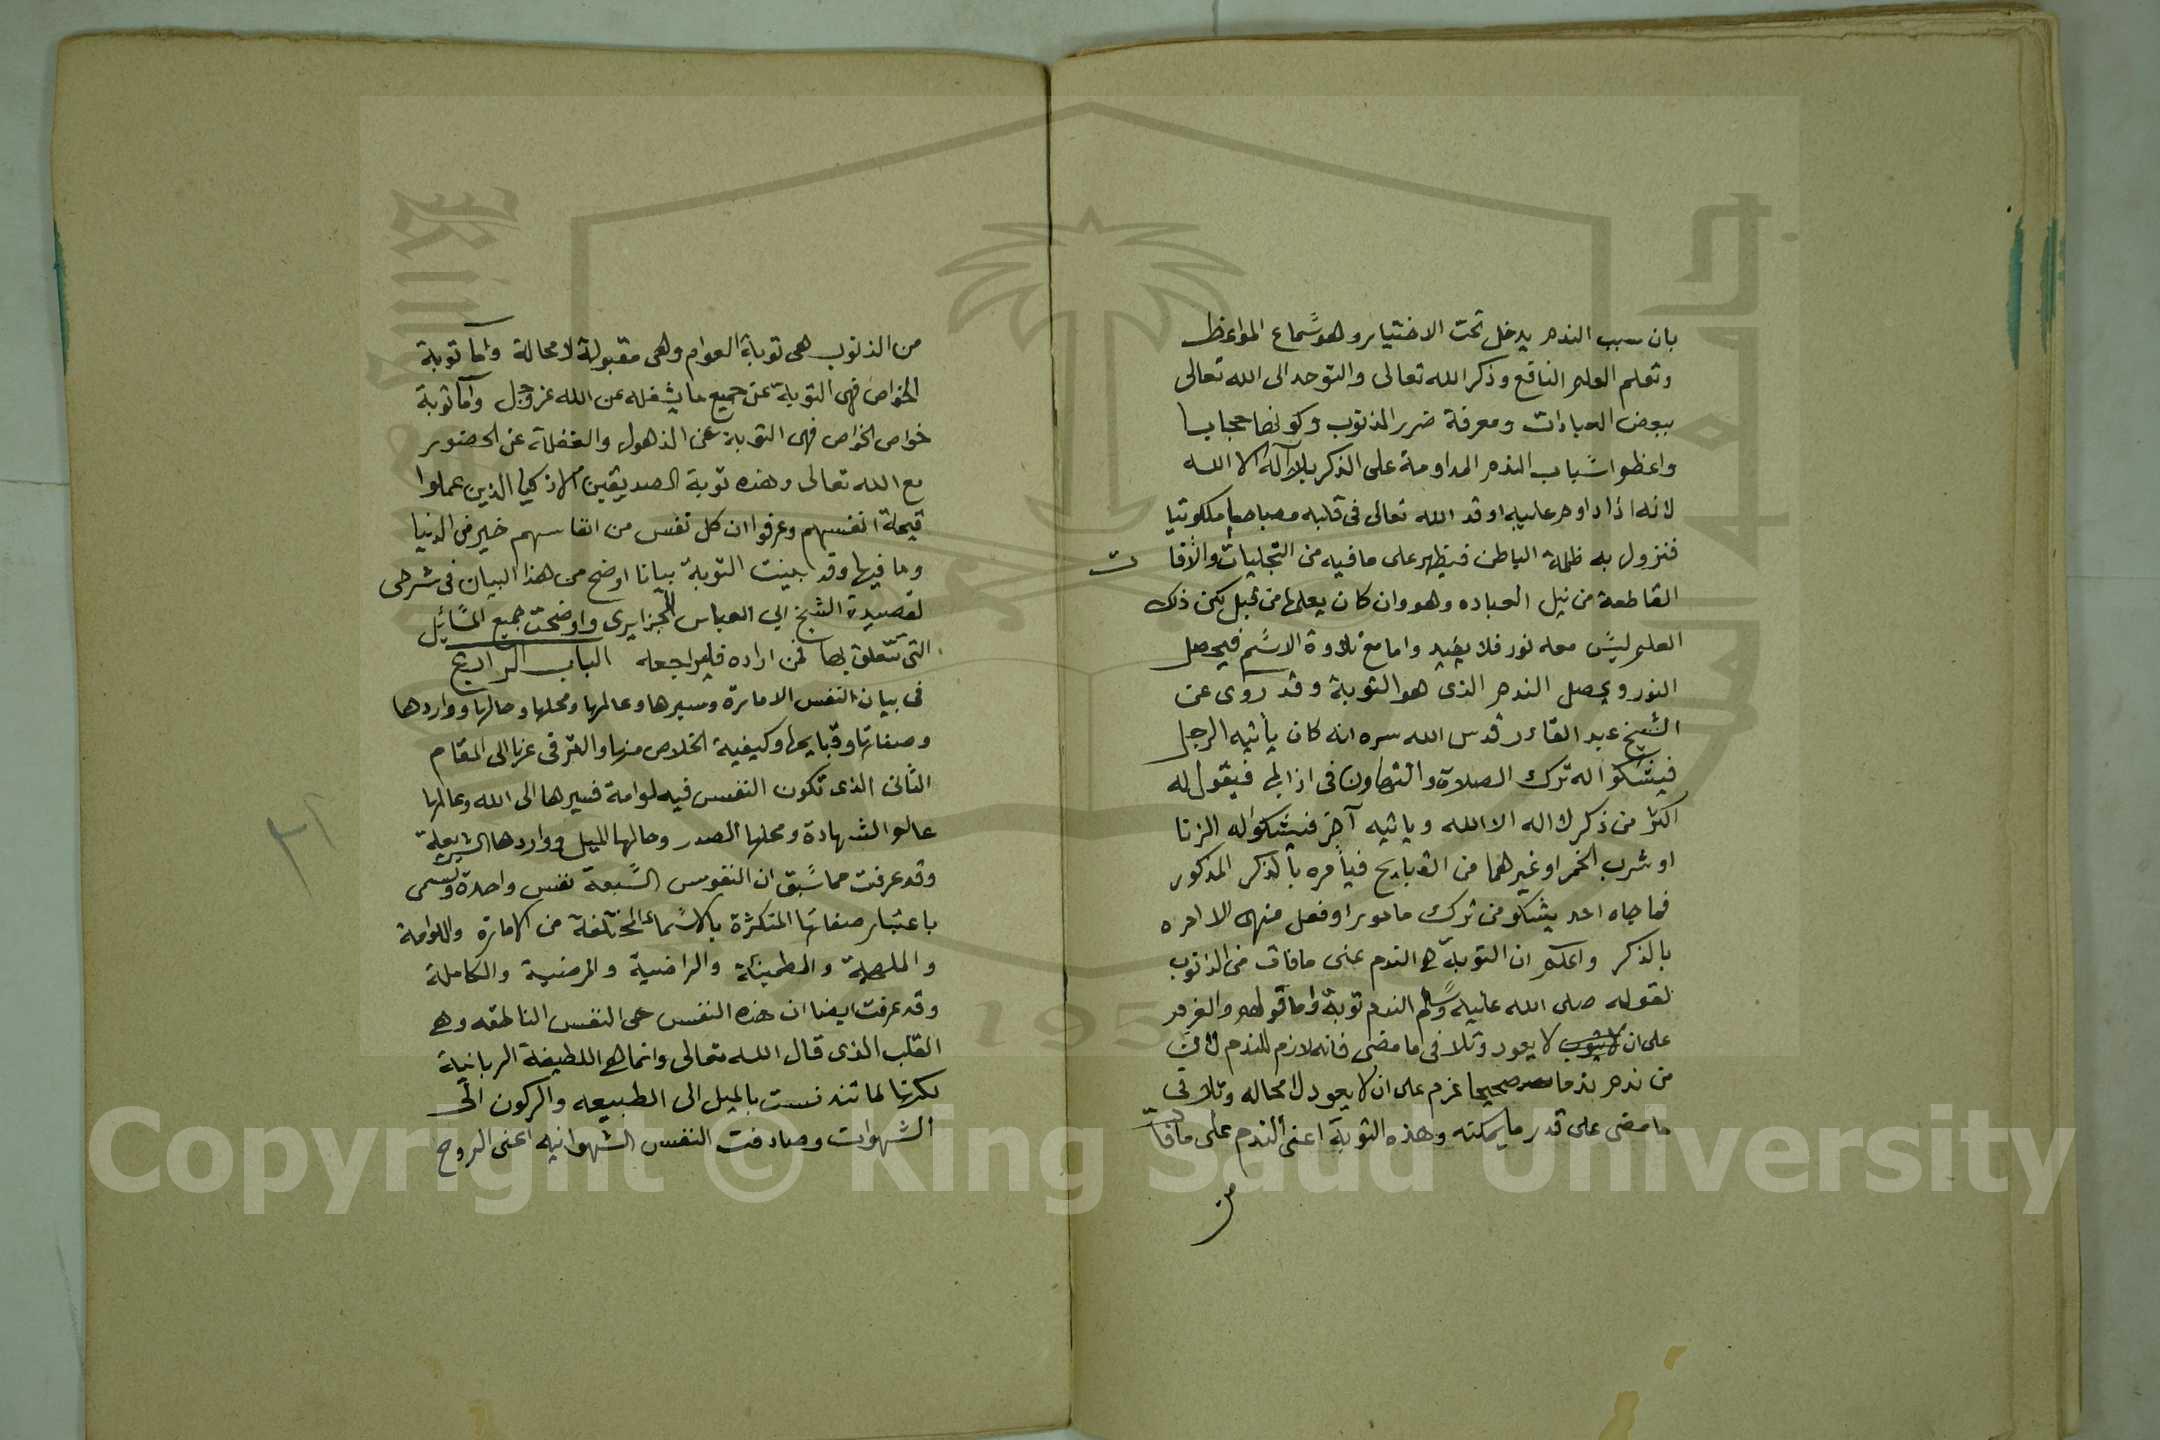 بان سبب الندم يدخل تحت الاختيار وهو سماع المواعظ
وتعلم العلم النافع وذكر الله تعالى والتوجه الى الله تعالى
ببعض العبادات ومعرفة ضرر الذنوب وكونها حجابا
واعظم اسباب الندم المداومة على الذكر بلا اله الا الله
لانه اذا داوم عليه اوقد الله تعالى فى قلبه مصباحا ملكوتيا
فتزول به ظلمة الباطن فيظهر على ما فيه من التجليات والآفات
القاطعة من نيل العباده وهو وان كان يعلمها من قبل لكن ذلك
العلم ليس معه نور فلا يفيد واما مع تلاوة الاسم فيحصل
النور ويحصل الندم الذى هو التوبة وقد روى عن
الشيخ عبد القادر قدس الله سره انه كان يأتيه الرجل
فيشكو اله ترك الصلاة والتهاون فى اذائها فيقول له
اكثر من ذكر لا اله الا الله وياتيه آخر فيشكو اله الزنا
او شرب الخمر او غيرهما من القبايح فيأمره بالذكر المذكور
فما جاه احد يشكو من ترك مامور او فعل منهى الا امره
بالذكر واعلم ان التوبة هى الندم عنى مافات من الذنوب
لقوله صلى الله عليه وسلم الندم توبة واما قولهم والعزم
على ان لا يعود وتلافى ما مضى فانه لازم للندم لان
من ندم ندما صحيحا عزم على ان لا يعود لا محاله وتلافى
ما مضى على قدر ما يمكنه وهذه التوبة اعنى الندم على مافات
من
من الذنوب هى توبة العوام وهى مقبولة لا محالة واما توبة
الخواص فهى التوبة عن جميع ما يشغله عن الله عز وجل واما توبة
خواص الخواص فهى التوبة عن الذهول والغفلة عن الحضور
مع الله تعالى وهذه توبة الصديقين الاذكيا الذين عملوا
قيمة انفسهم وعرفوا ان كل نفس من انفاسهم خير من الدنيا
وما فيها وقد بينت التوبة بيانا اوضح من هذا البيان فى شرحى
لقصيدة الشيخ ابي العباس الجزايرى واوضحت جميع المسائل
التى تتعلق بها فمن اراده فليراجعه الباب الرابع
فى بيان النفس الامارة وسيرها وعالمها ومحلها وحالها وواردها
وصفاتها وقبايحها وكيفية الخلاص منها والترقى عنها الى المقام
الثانى الذى تكون النفس فيه لوامة فسيرها الى الله وعالمها
عالم الشهادة ومحلها الصدر وحالها الميل وواردها الشريعة
وقد عرفت مما سبق ان النفوس السبعة نفس واحدة وتسمى
باعتبار صفاتها المتكثرة بالاسماء المختلفة من الامارة واللوامة
والملهمة والمطمئنة والراضية والمرضية والكاملة
وقد عرفت ايضا ان هذه النفس هى النفس الناطقه وهى
القلب الذى قال الله تعالى وانما هى اللطيفة الربانية
لكنها لما تدنست بالميل الى الطبيعه والركون الى
الشهوات وصادفت النفس الشهوانيه اعنى الروح
Copyright © King Saud University